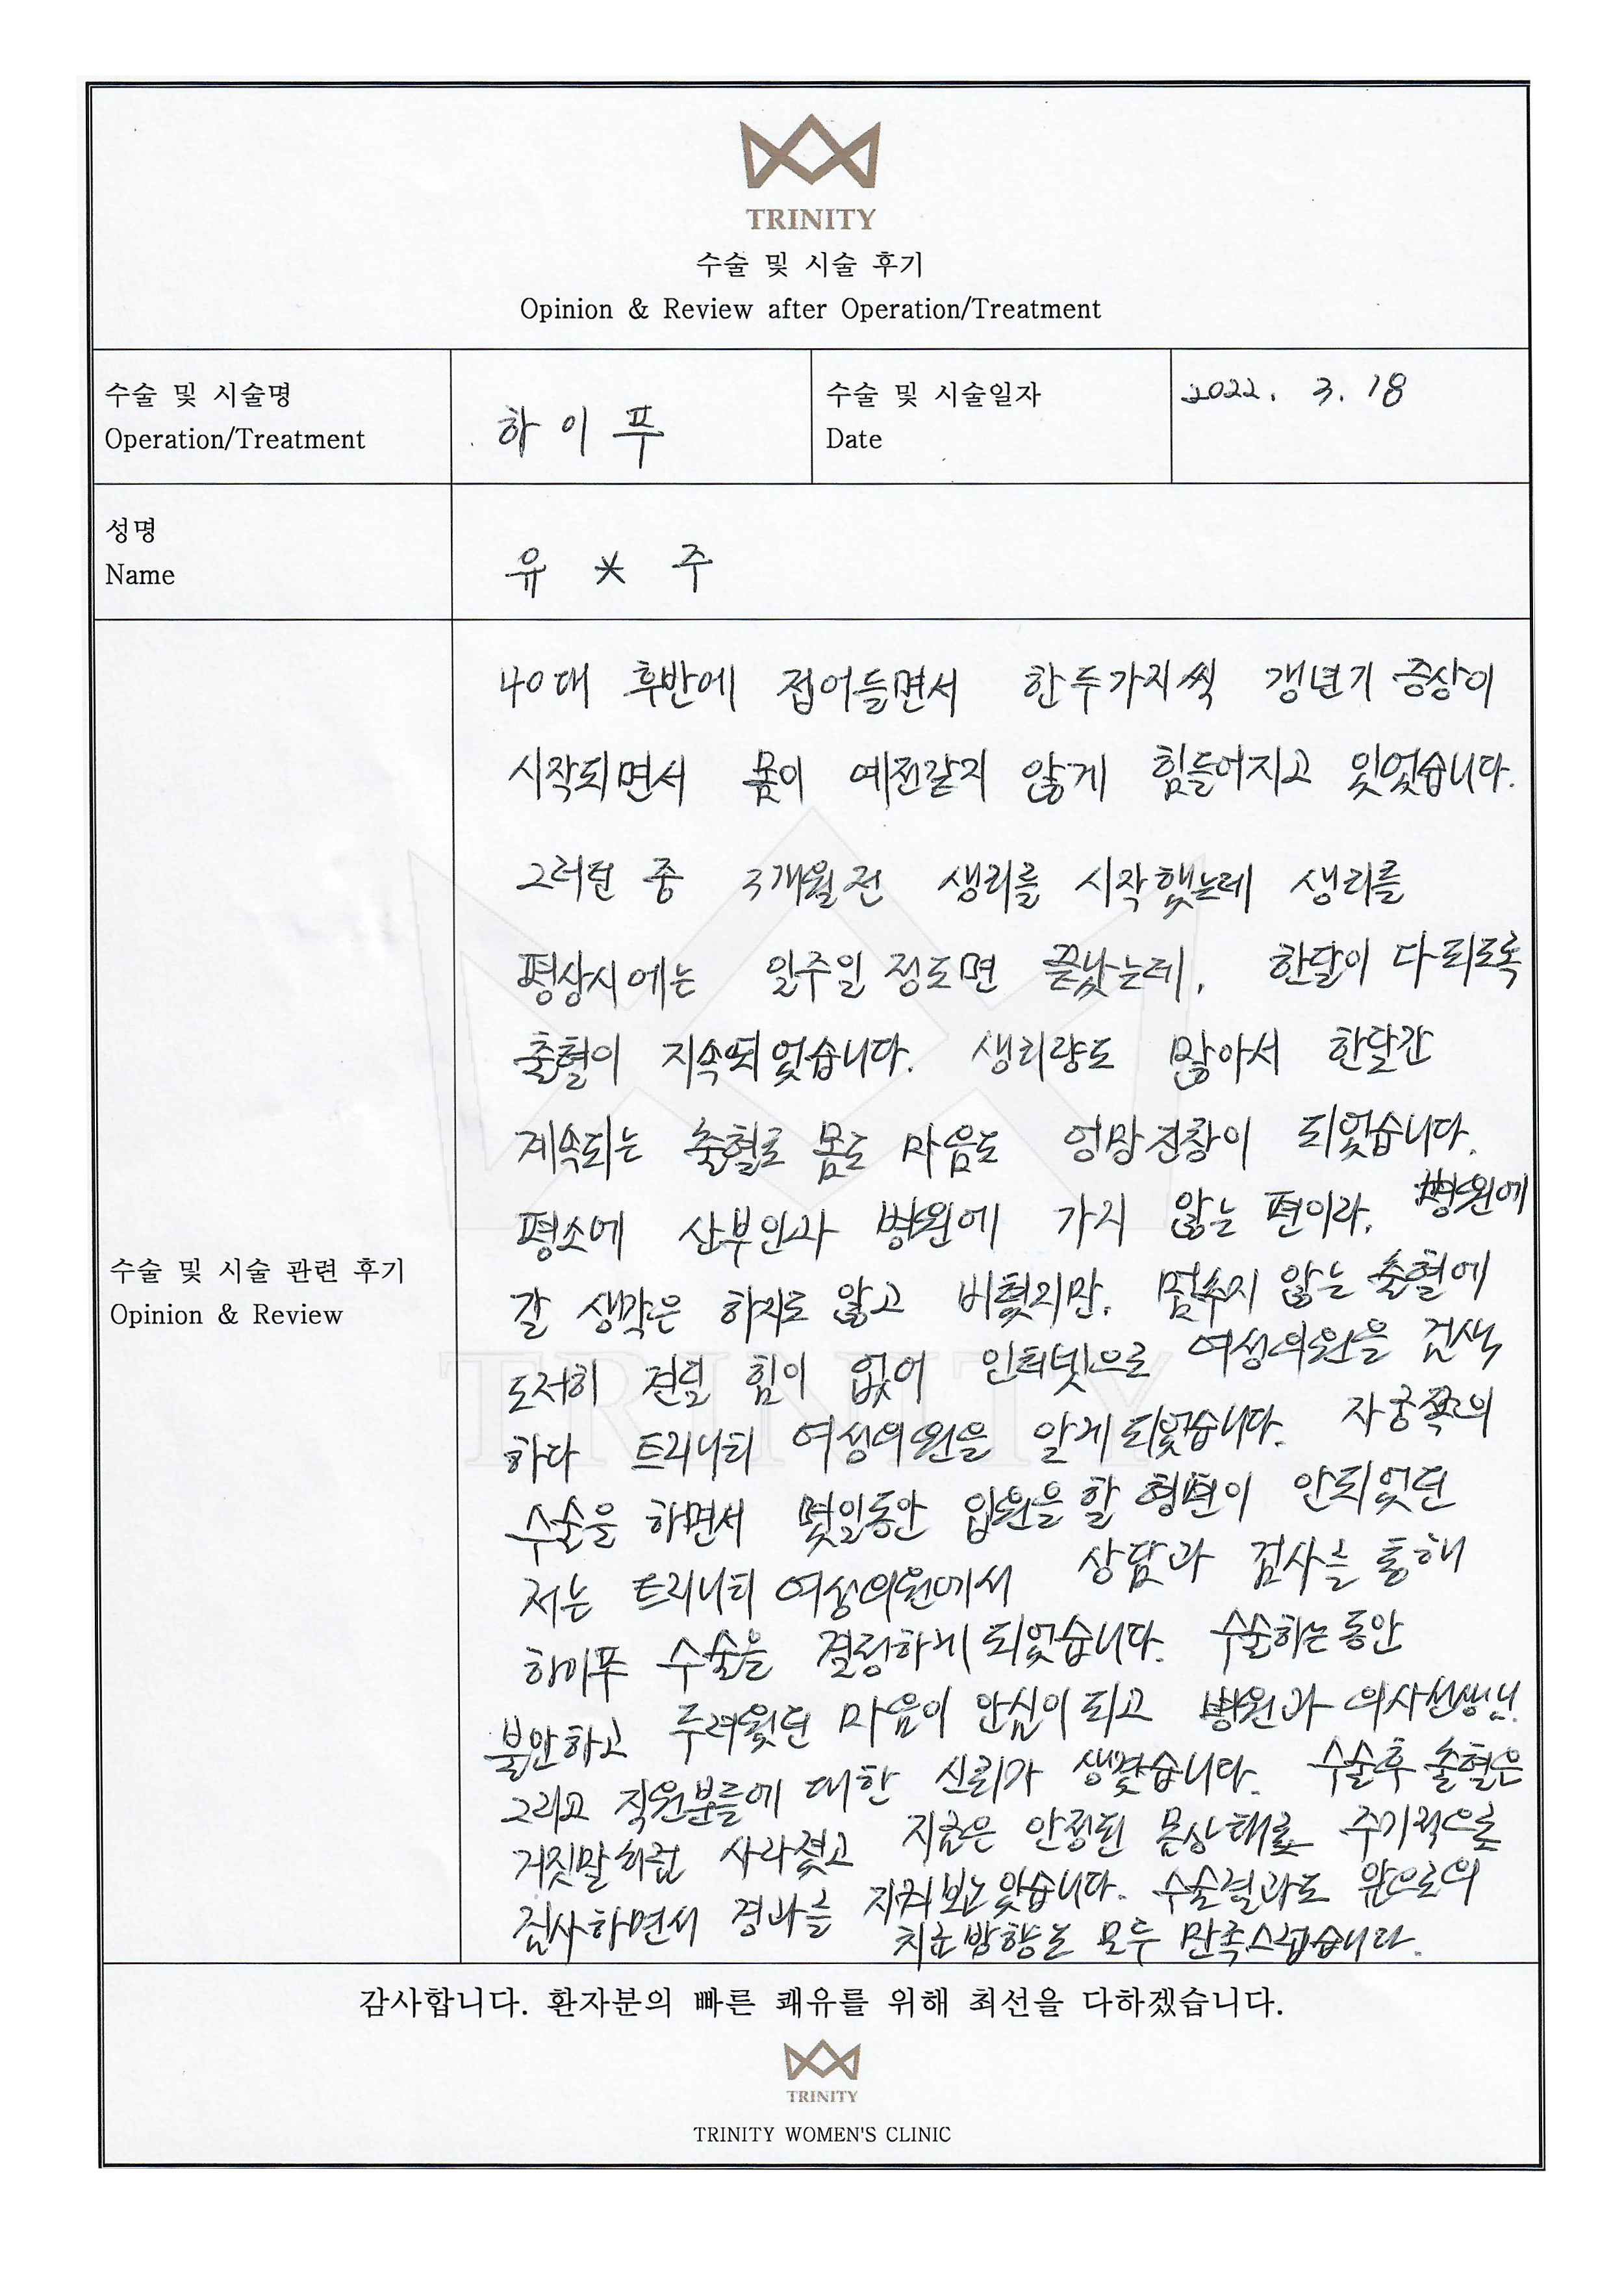 TRINITY
수술 및 시술 후기
Opinion & Review after Operation/Treatment
수술 및 시술명
Operation/Treatment
하이푸
수술 및 시술일자
Date
2022. 3. 18
성명
Name
유 * 주
수술 및 시술 관련 후기
Opinion & Review
40대 후반에 접어들면서 한두가지씩 갱년기 증상이
시작되면서 몸이 예전같지 않게 힘들어지고 있었습니다.
그러던 중 3개월전 생리를 시작했는데 생리를
평상시에는 일주일 정도면 끝났는데, 한달이 다되도록
출혈이 지속되었습니다. 생리량도 많아서 한달간
계속되는 출혈로 몸도 마음도 엉망진창이 되었습니다.
평소에 산부인과 병원에 가지 않는 편이라, 병원에
갈 생각은 하지도 않고 버텼지만, 멈추지 않는 출혈에
도저히 견딜 힘이 없어 인터넷으로 여성의원을 검색
하다 트리니티 여성의원을 알게되었습니다. 자궁쪽의
수술을 하면서 몇일동안 입원을 할 형편이 안되었던
저는 트리니티 여성의원에서 상담과 검사를 통해
하이푸 수술을 결정하게 되었습니다. 수술하는 동안
불안하고 두려웠던 마음이 안심이 되고 병원과 의사선생님
그리고 직원분들에 대한 신뢰가 생겼습니다. 수술후 출혈은
거짓말처럼 사라졌고 지금은 안정된 몸상태로 주기적으로
검사하면서 경과를 지켜보고 있습니다. 수술결과도 앞으로의
치료방향도 모두 만족스럽습니다.
감사합니다. 환자분의 빠른 쾌유를 위해 최선을 다하겠습니다.
TRINITY
TRINITY WOMEN'S CLINIC
TRINITY